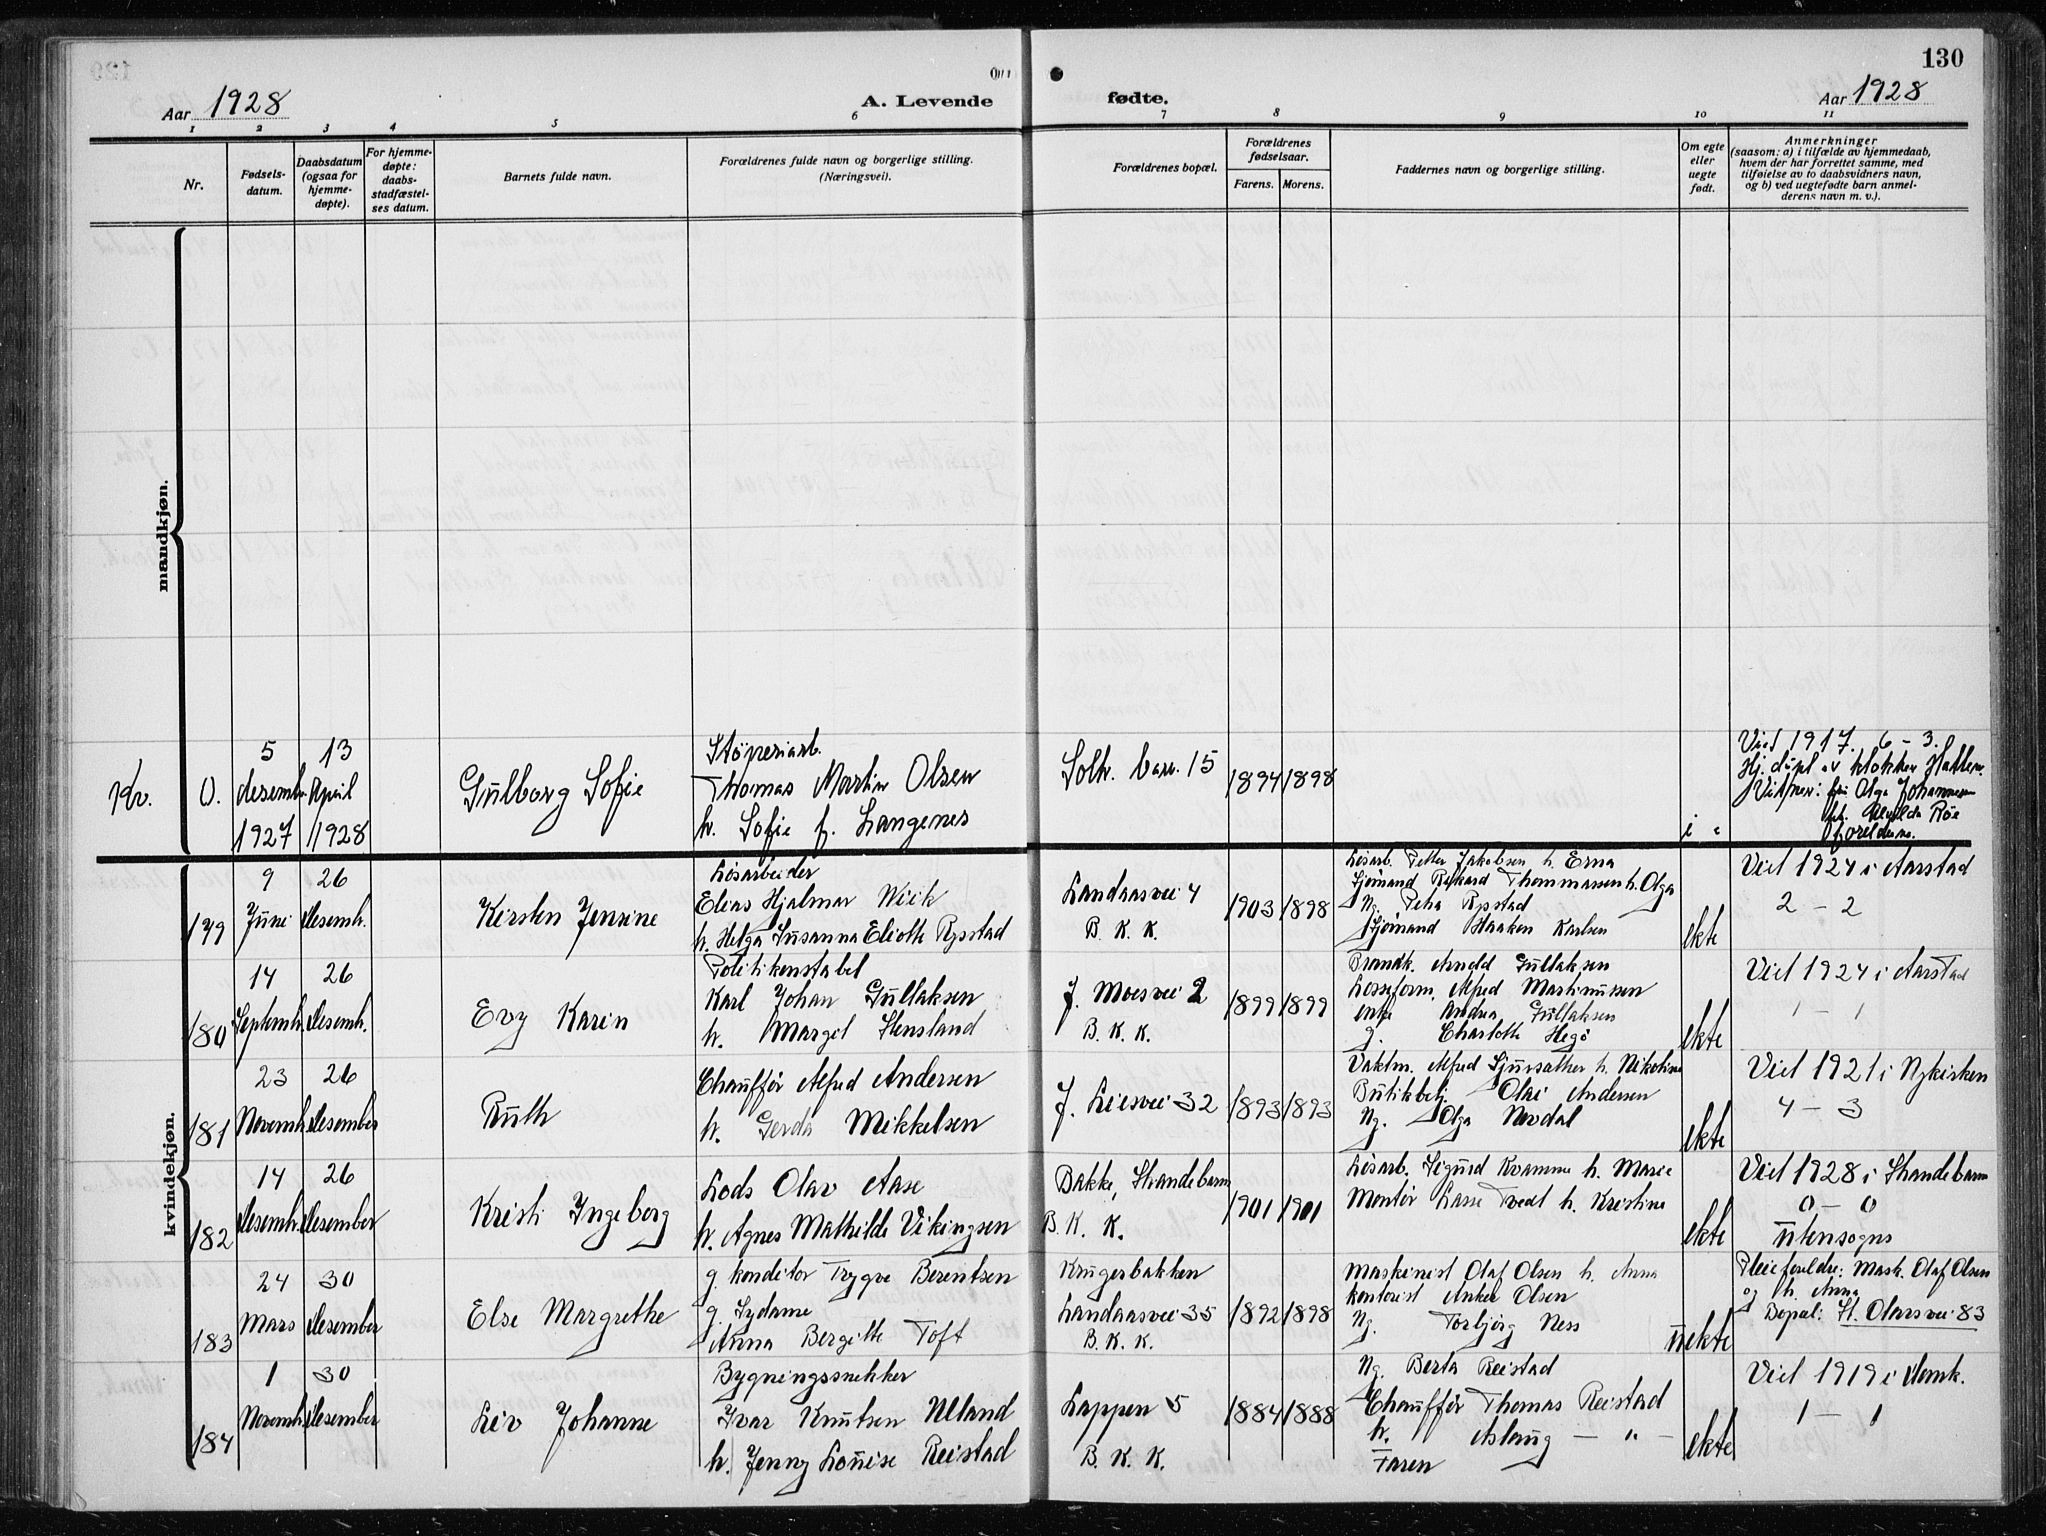 130
Aar 1928
A. Levende
fødte.
Aar 1928
1 2 3 4 5 6 7 8 9 10 11
Nr.
Fødsels-
datum.
Daabsdatum
(ogsaa for
hjemme-
døpte).
For hjemme-
døpte:
daabs-
stadfæstel-
ses datum.
Barnets fulde navn.
Forældrenes fulde navn og borgerlige stilling.
(Næringsvei).
Forældrenes bopæl.
Forældrenes
fødselsaar.
Farens. Morens.
Faddernes navn og borgerlige stilling.
Om egte
eller
uegte
født.
Anmerkninger
(saasom: a) i tilfælde av hjemmedaab,
hvem der har forrettet samme, med
tilføielse av to daabsvidners navn,
og b) ved uegtefødte barn anmel-
derens navn m. v.).
mandkjøn.
Kv.
0.
5
desembr.
1927
13
April
1928
Gülborg Sofie
Støperiarb.
Thomas Martin Olsen
h. Sofie f. Langenes
Solh. barr. 15
1894 1898
Viet 1917. 6 – 3.
Hj. døpt av klokker Hatlem.
Vitner: fru Olga Johannesen
Røe
foreldrene.
kvindekjøn.
179
9
Juni
26
desemb.
Kirsten Jensine
Løsarbeider
Elias Hjalmar Wiik
h. Helga Susanna Eliotte Rystad
Landaasvei 4
B. K. K.
1903 1898
Løsarb. Petter Jakobsen h. Erna
Sjømand Rikard Thommassen h. Olga
Ng. Petra Rystad
Sjømand Haaken Karlsen
ekte
Viet 1924 i Aarstad
2 – 2
180
14
Septemb.
26
desemb.
Evy Karin
Politikonstabel
Karl Johan Gullaksen
h. Margit Stensland
J. Moesvei 2
B. K. K.
1899 1899
Brandk. Arnold Gullaksen
Losseform. Alfred Martinussen
enke Andrea Gullaksen
g. Charlotte Hegø
ekte
Viet 1924 i Aarstad
1 – 1
181
23
Novemb.
26
desember
Ruth
Chauffør Alfred Andersen
h. Gerda Mikkelsen
J. Liesvei 32
1893 1893
Vaktm. Alfred Sjursæther h. Nikoline
Butikbetj. Olai Andersen
Ng. Olga Novdal
ekte
Viet 1921 i Nykirken
4 – 3
182
14
desemb.
26
desember
Kristi Ingeborg
Lods Olav Aase
h. Agnes Mathilde Vikingsen
Bakke, Strandebarm
B. K. K.
1901 1901
Løsarb. Sigurd Kvamme h. Marie
Montør Lasse Tvedt h. Kristine
ekte
Viet 1928 i Strandebarm
0 – 0
ütensogns
183
24
Mars
30
desember
Else Margrethe
g. konditor Trygve Berentsen
g. Sydame
Anna Bergitte Toft
Krugerbakken
Landaasvei 35
B. K. K.
1892 1898
Maskinist Olaf Olsen h. Anna
kontorist Anker Olsen
Ng. Torbjørg Ness
üekte
Pleieforeldre: Mask. Olaf Olsen
og h. Anna
Bopæl: St. Olavsvei 83
184
1
Novemb.
30
desember
Liv Johanne
Bygningssnekker
Ivar Knutsen Ulland
h. Jenny Louise Reistad
Lappen 5
B. K. K.
1884 1888
Ng. Berta Reistad
Chauffør Thomas Reistad
h. Aslaug — " —
Faren
ekte
Viet 1919 i Domk.
1 – 1